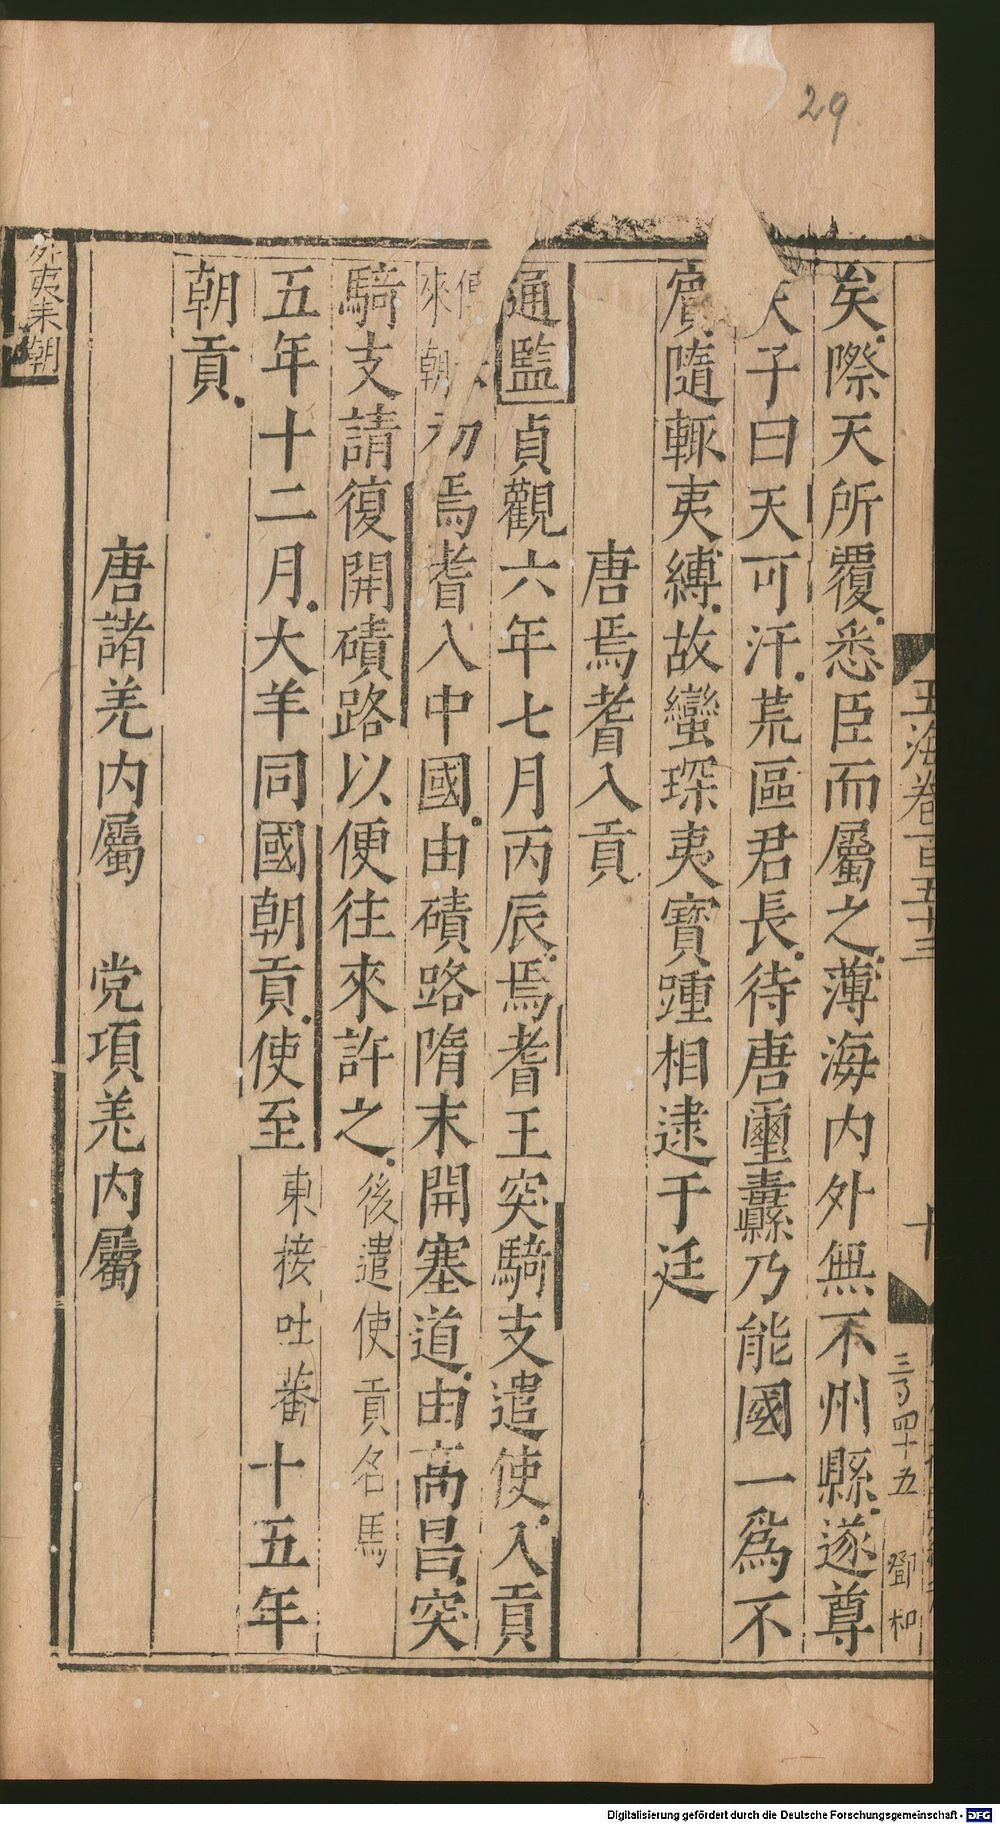 29
玉海卷百五十三
十
三百四十五
鄧和
矣際天所覆悉臣而屬之薄海内外無不州縣遂尊
天子曰天可汗荒區君長待唐璽纛乃能國一為不
賔隨輒夷縛故蠻琛夷寳踵相逮于廷
唐焉耆入貢
通監貞觀六年七月丙辰焉耆王突騎支遣使入貢
來朝初焉耆入中國由磧路隋末開塞道由高昌突
騎支請復開磧路以便往來許之後遣使貢名馬
五年十二月大羊同國朝貢使至東接吐蕃十五年
朝貢
唐諸羌内屬　党項羌内屬
外夷来朝
Digitalisierung gefördert durch die Deutsche Forschungsgemeinschaft - DFG